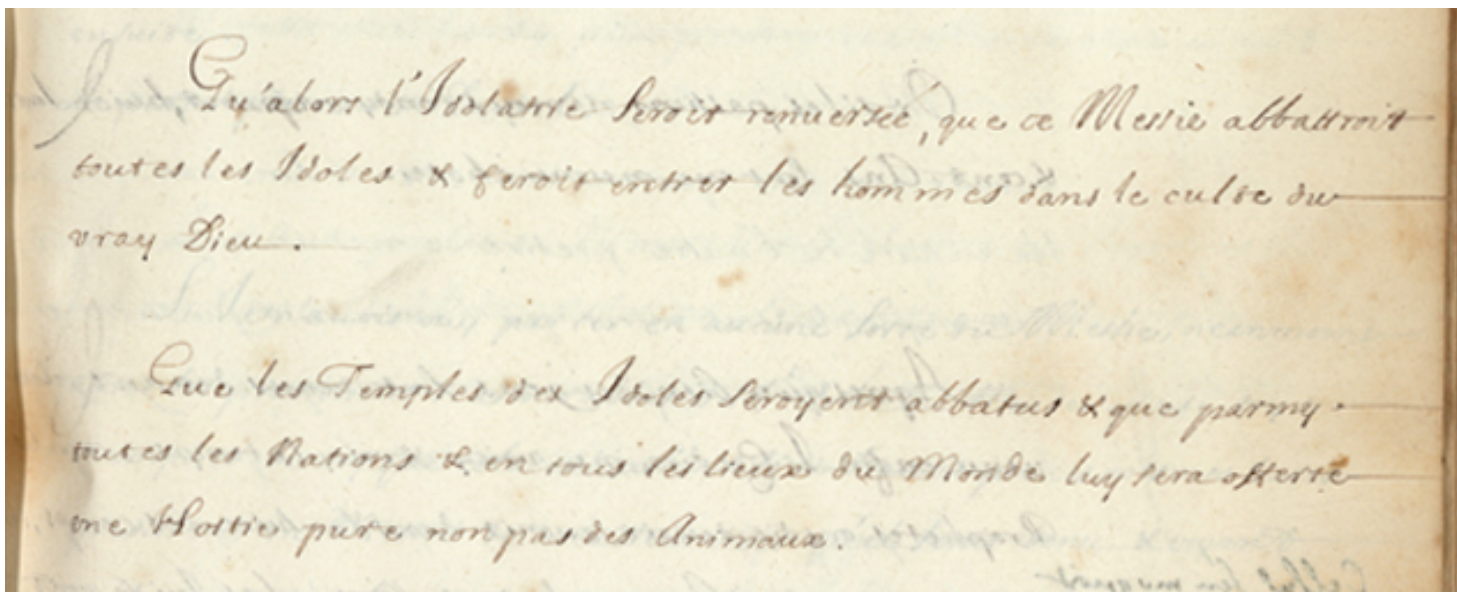 Qu'alors l'Idolatrie seroit renuersée, que ce Messie abbattroit
toutes les Idoles & feroit entrer les hommes dans le culte du
vray Dieu.
Que les Temples des Idoles seroyent abbatus & que parmy
toutes les Nations & en tous les lieux du Monde luy sera offerte
vne Hostie pure non pas des Animaux.